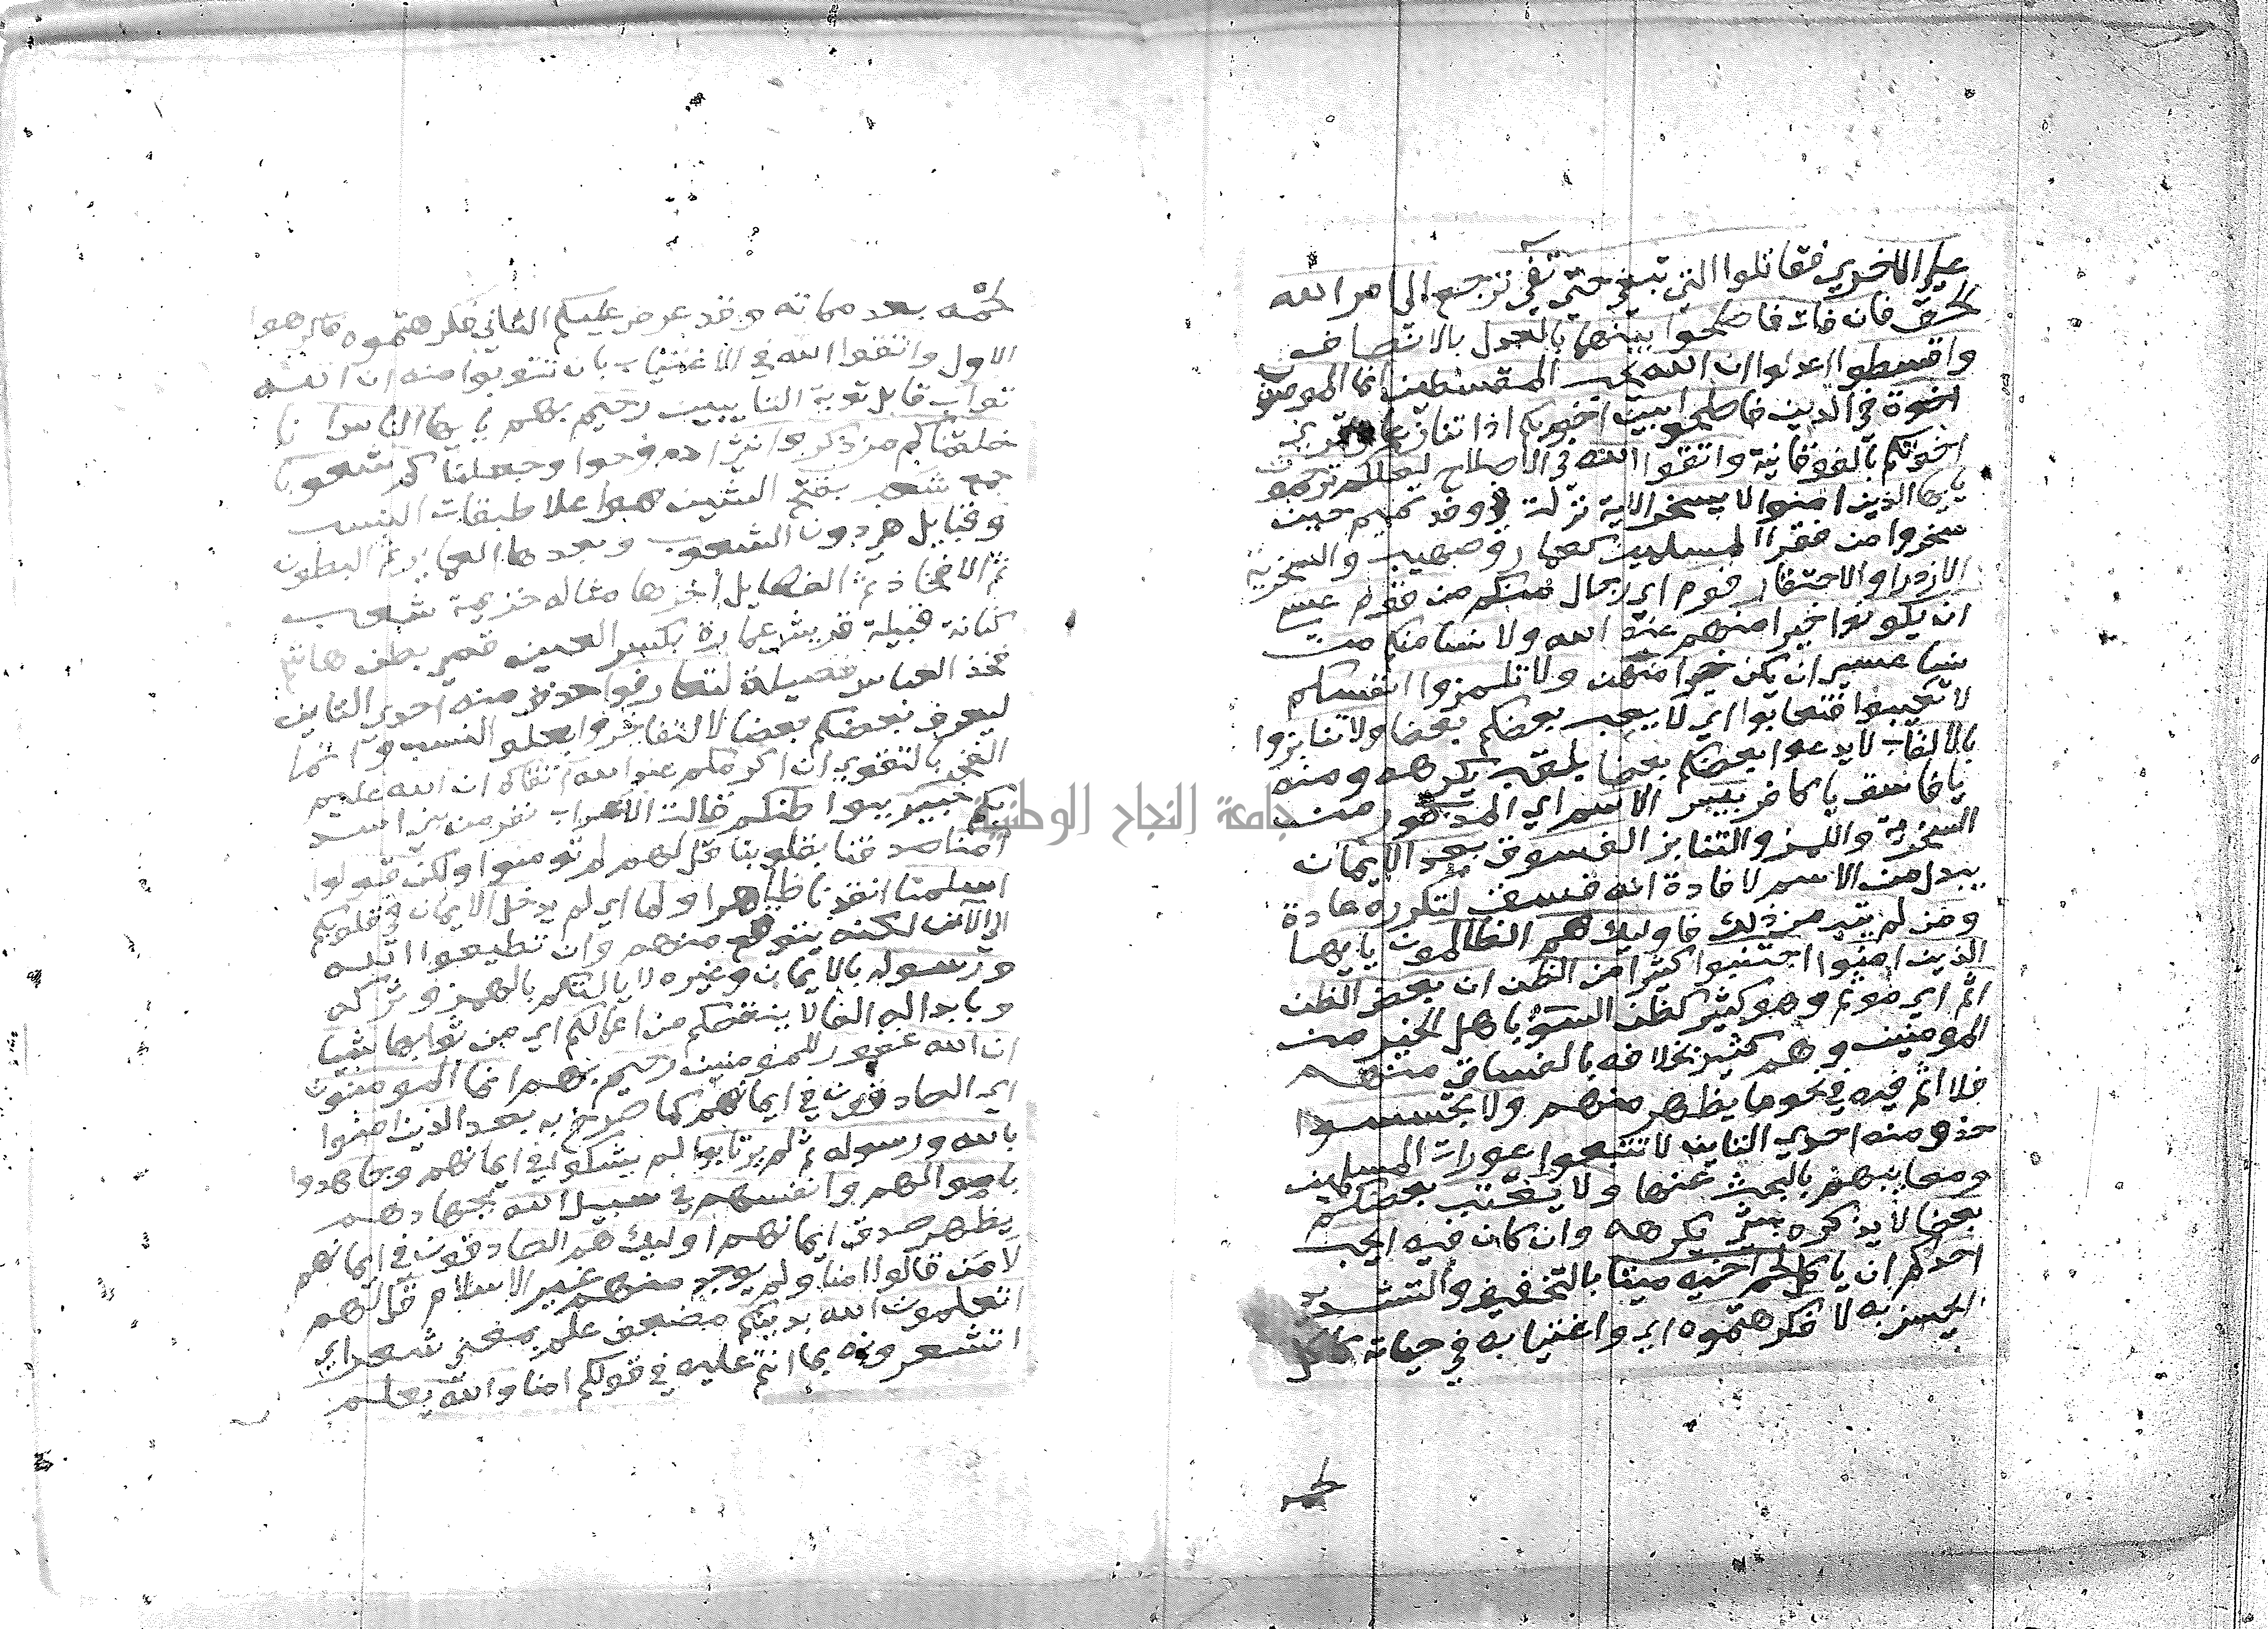 علي الاخري فقاتلوا التي تبغي حتي تفي ترجع الي امر الله
الحق فان فات فاصلحوا بينهما بالعدل بالانصاف
واقسطوا اعدلوا ان الله يحب المقسطين انما المومنون
اخوة في الدين فاصلحوا بين اخويكم اذا تنازعا وقري
اخوتكم بالفوقانية واتقوا الله في الاصلاح لعلكم ترحمون
يايها الذين امنوا لا يسخر الاية نزلت في وفد تميم حين
سخروا من فقرا المسلمين كعمار وصهيب والسخرية
الازدرا والاحتقار قوم اي رجال منكم من قوم عسي
ان يكونوا خيرا منهم عند الله ولا نسا منكم من
نسا عسي ان يكن خيرا منهن ولا تلمزوا انفسكم
لا تعيبوا فتعابوا اي لا يعب بعضكم بعضا ولا تنابزوا
بالالقاب لا يدعوا بعضكم بعضا بلقب يكرهه ومنه
يا فاسق يا كافر بيس الاسم اي المذكور من
السخرية واللمز والتنابز الفسوق بعد الايمان
بدل من الاسم لافادة انه فسق لتكرره عادة
ومن لم يتب من ذلك فاوليك هم الظالمون يايها
الذين امنوا اجتنبوا كثيرا من الظن ان بعض الظن
اثم اي موثم وهو كثير كظن السوء باهل الخير من
المومنين وهم كثير بخلافه بالفساق منهم
فلا اثم فيه في نحو ما يظهر منهم ولا تجسسوا
حذف منه احدي التاين لا تتبعوا عورات المسلمين
ومعايبهم بالبحث عنها ولا يغتب بعضكم
بعضا لا يذكره بشي يكرهه وان كان فيه ايحب
احدكم ان ياكل لحم اخيه ميتا بالتخفيف والتشديد
لايحسن به لا فكرهتموه اي واغتيابه في حياته كاكل
لحمه
لحمه بعد مماته وقد عرض عليكم الثاني فكرهتموه فاكرهوا
الاول واتقوا الله في الاغتياب بان تتوبوا منه ان الله
تواب قابل توبة التايبين رحيم بهم يايها الناس انا
خلقناكم من ذكر وانثي ادم وحوا وجعلناكم شعوبا
جمع شعب بفتح الشين هوا علا طبقات النسب
وقبايل هي دون الشعوب وبعدها العماير ثم البطون
ثم الافخاذ ثم الفصايل اخرها مثاله خزيمة شعب
كنانة قبيلة قريش عمارة بكسر العين قصي بطن هاشم
فخذ العباس فصيلة لتعارفوا حذف منه احدي التاين
ليعرف بعضكم بعضا لا لتفاخروا بعلو النسب وانما
الفخر بالتقوي ان اكرمكم عند الله اتقاكم ان الله عليم
بكم خبير ببواطنكم قالت الاعراب نفر من بني اسد
امنا صدقنا بقلوبنا قل لهم لم تومنوا ولكن قولوا
اسلمنا انقدنا ظاهرا ولما اي لم يدخل الايمان في قلوبكم
الي الان لكنه يتوقع منهم وان تطيعوا الله
ورسوله بالايمان وغيره لا يالتكم بالهمز وتركه
وبابداله الفا لا ينقصكم من اعمالكم اي من ثوابها شيا
ان الله غفور للمومنين رحيم بهم انما المومنون
اي الصادقون في ايمانهم كما صرح به بعد الذين امنوا
بالله ورسوله ثم لم يرتابوا لم يشكوا في ايمانهم وجاهدوا
باموالهم وانفسهم في سبيل الله بجهادهم
يظهر صدق ايمانهم اوليك هم الصادقون في ايمانهم
لا من قالوا امنا ولم يوجد منهم غير الاسلام قل لهم
اتعلمون الله بدينكم مضعف علم بمعني شعر اي
اتشعرونه بما انتم عليه في قولكم امنا والله يعلم
جامعة النجاح الوطنية